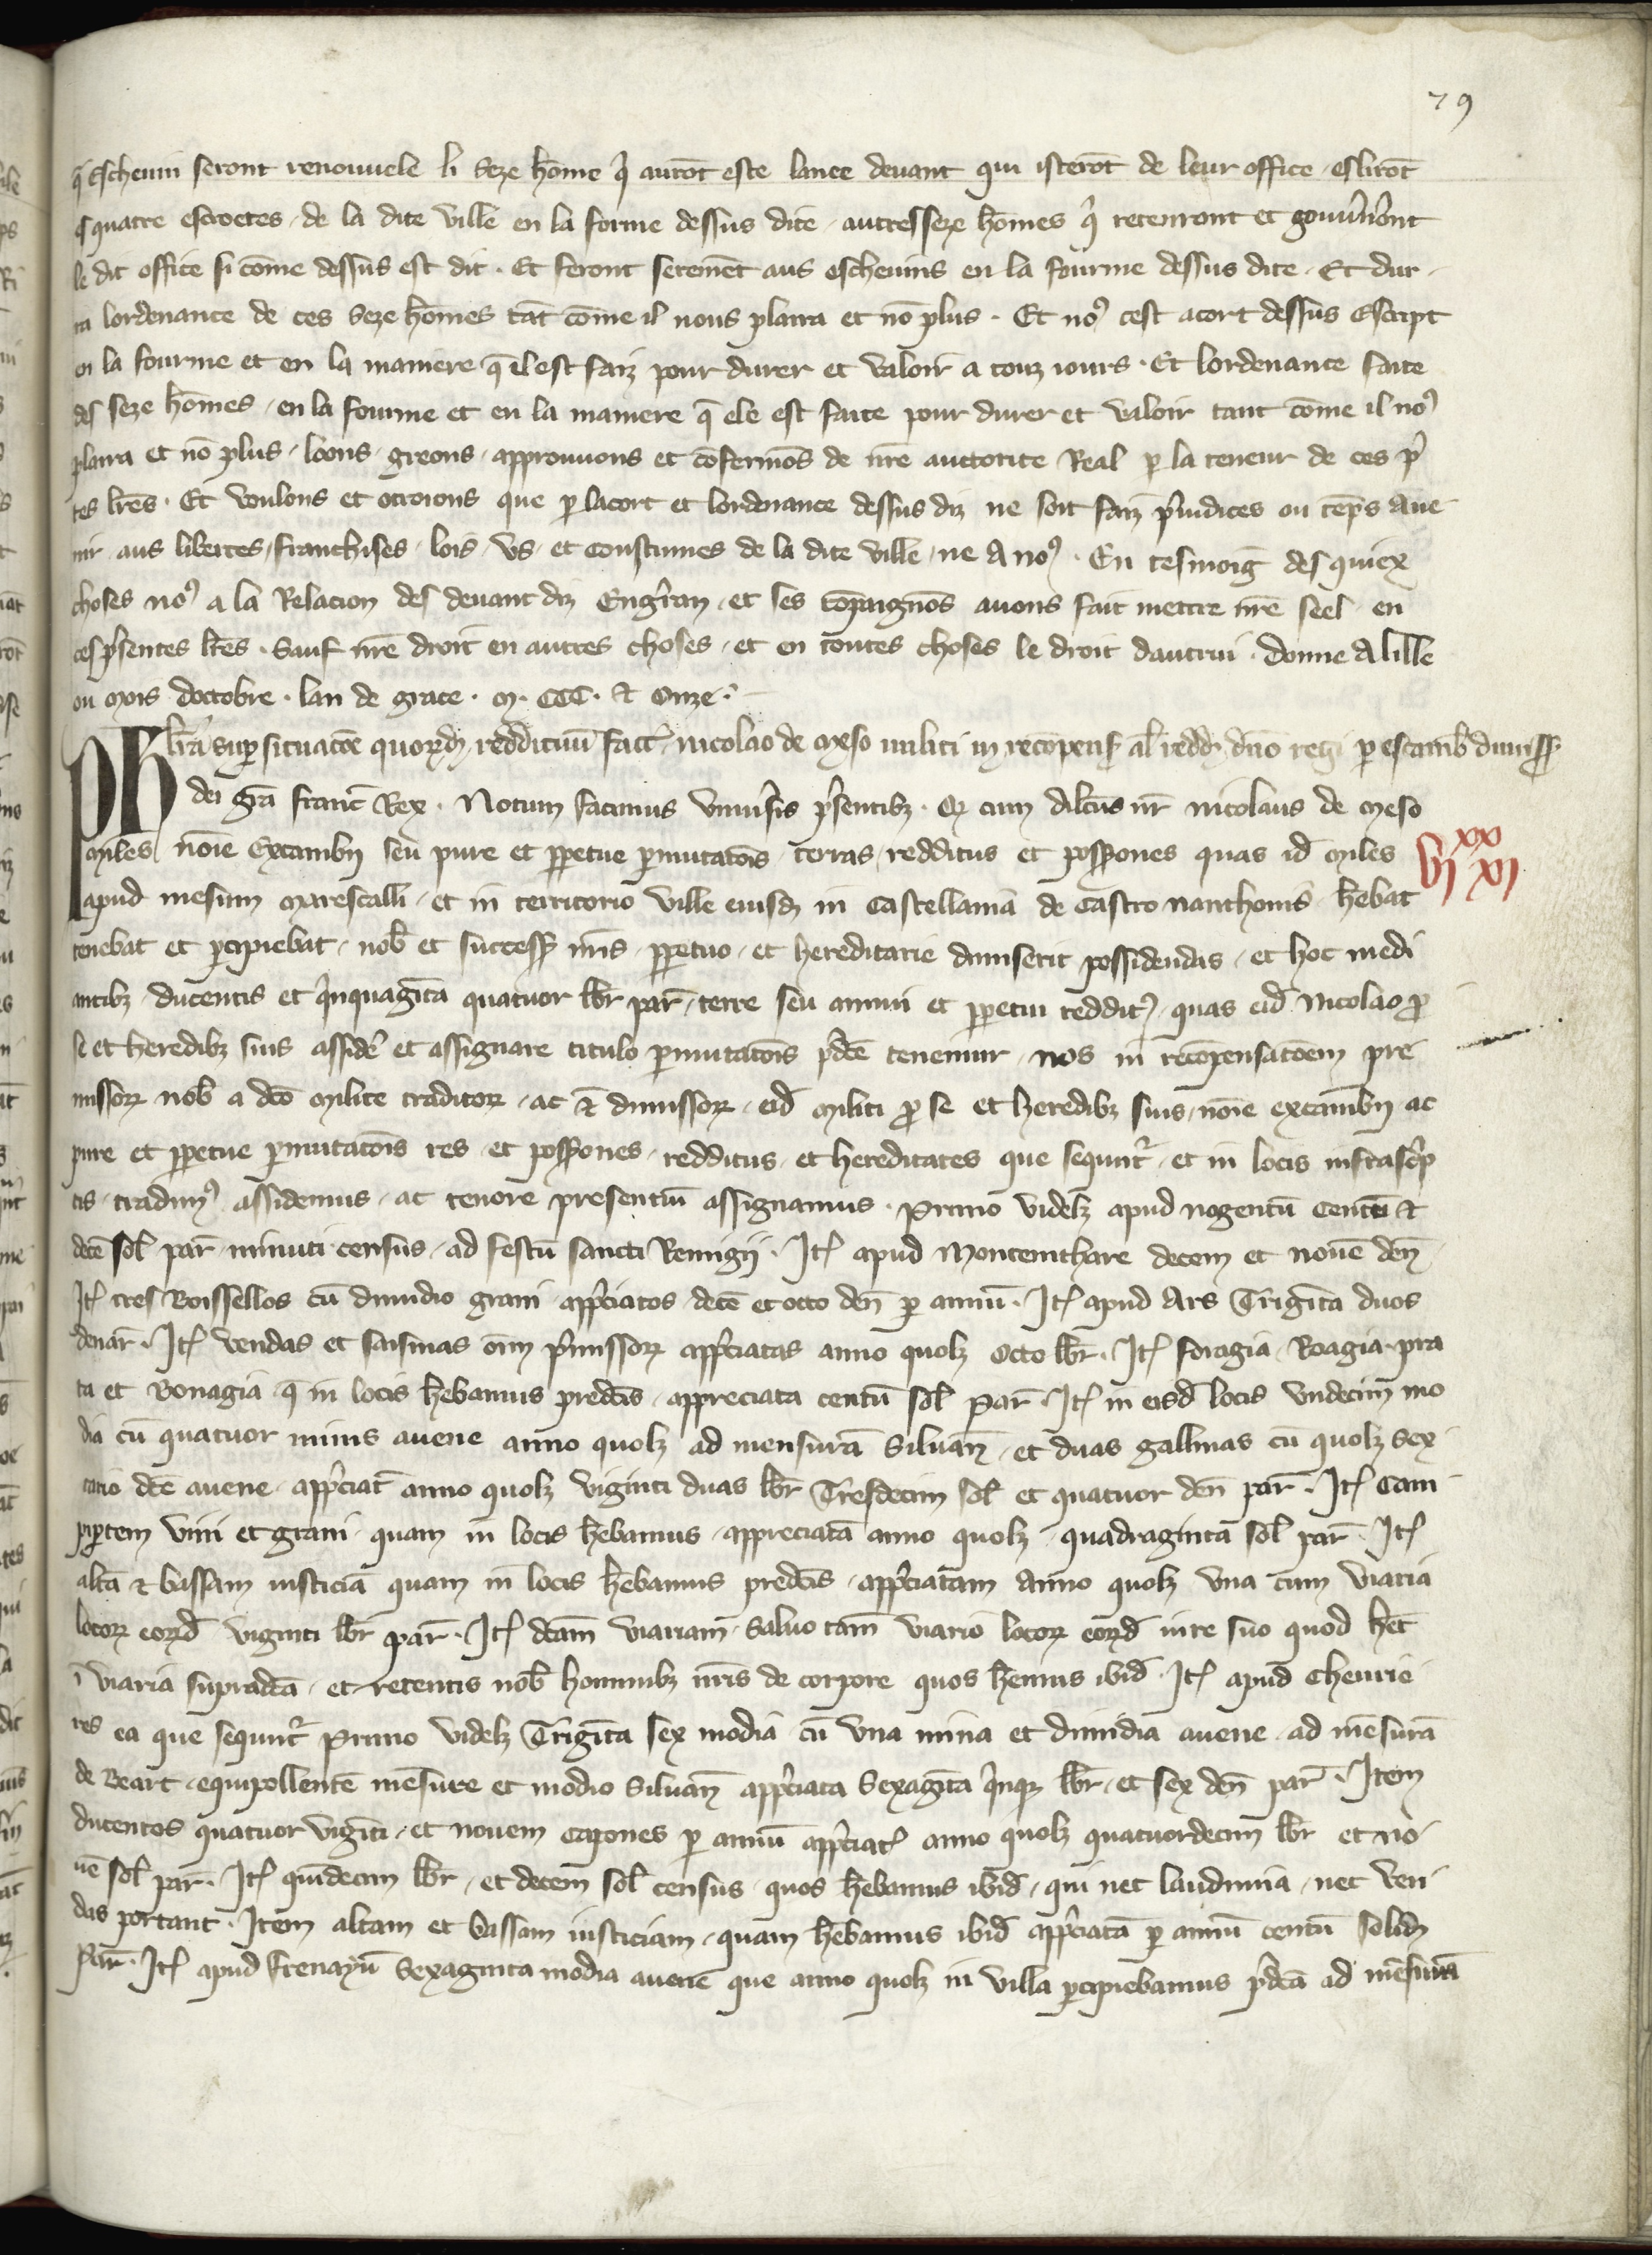 79
q̄ Escheuin seront renouuele li seze hōme qͥ aurōt este lanee deuant qui isterōt de leur office eslirōt
es quatre escroetes de la dite ville en la forme dessus dite autres seze hōmes qͥ retenront et gouu̾n̾ont
le dit office si cōme dessus est dit . Et feront seremēt aus escheuins en la fourme dessus dite . Et dur
ra lordenance de ces seze hōmes tāt cōme il nous plaira et nō plus . Et noꝰ cest acort dessus Escript
en la fourme et en la maniere q̄ il est faiz pour durer et valoir a touz iours . Et lordenance faite
des seze hōmes en la fourme et en la maniere q̄ ele est faite pour durer et valoir tant cōme il noꝰ
plaira et nō plus . loons . greons . approuuons et cōfermōs de nr̄e auctorite Real ꝑ la teneur de ces p̾
tes lr̄es . Et voulons et otroions que ꝑ lacort et lordenance dessus diz ne soit faiz p̾iudices ou tēps aue
nir aus libertes franchises lois vs et coustumes de la dite ville ne A noꝰ . En tesmoīg des quiex
choses noꝰ a la Relacion des deuant diz Eng̾ran et ses cōpaignōs auons fait mettre nr̄e seel en
ces p̾sentes lr̄es . Sauf nr̄e droit en autres choses et en toutes choses le droit dautrui . Donne A lille
ou mois doctobre . lan de grace . M . CCC . et Onze .
lr̄a suꝑ situacōe quorūdꝫ reddituū fact̾ Nicolao de Meso militi in recōpens̾ al̾ redd̾ dn̄o regi ꝑ escamb̾ dimiss̾
PH dei grā franc̄ Rex . Notum facimus vniu̾sis p̾sentibꝫ . Qꝫ cum dilc̄us nr̄ Nicolaus de Meso
Miles noīe Excambij seu pure et ꝑpetue ꝑmutacōis terras redditus et possessiones quas id̄ Miles
apud mesum Marescalli et in territorio ville eiusdꝫ in Castellania de Castro nanthonis hēbat
VI XX XI
tenebat et ꝑcipiebat nob̄ et success̾ nr̄is ꝑpetuo et hereditarie dimiserit possidendas et hoc medi
antibꝫ ducentis et q̾nquagīta quatuor lbr̄ par̄ terre seu annui et ꝑpetui redditꝰ quas eid̄ Nicolao ꝓ
se et heredibꝫ suis assid̾e et assignare titulo ꝑmutacōis p̾dc̄e tenemur nos in recōpensacōem pre
missorꝝ nob̄ a dc̄o Milite traditorꝝ ac et dimissorꝝ eid̄ Militi ꝓ se et heredibꝫ suis noīe excambij ac
pure et ꝑpetue ꝑmutacōis res et possessiones redditus et hereditates que sequnt̾ et in locis infrasc̾p
tis tradimꝰ assidemus ac tenore presentiū assignamus . Primo videlꝫ apud Nogentū Centū et
decē sol̄ par̄ minuti census ad festū sancti Remigij . Itꝭ apud Montemthare decem et nouē den̄
Itꝭ tres Boissellos cū dimidio grani app̾ciatos decē et octo den̄ ꝑ annū . Itꝭ apud Ars Trigīta duos
denar̄ . Itꝭ vendas et saisinas oīm p̾missorꝝ app̾ciatas anno quolꝫ Octo lbr̄ . Itꝭ foragia . Roagia . pra
ta et Bonagia q̄ in locis hēbamus predc̄is appreciata centū sol̄ Par̄ . Itꝭ in eisd̄ locis vndecim mo
dia cū quatuor minis auene anno quolꝫ ad mensurā Siluan̄ et duas gallinas cū quolꝫ sex
tario dc̄e auene app̾ciat̄ anno quolꝫ viginti duas lbr̄ Tresdecim sol̄ et quatuor den̄ par̄ . Itꝭ Cam
ꝑtem vini et grani quam in locis hēbamus appreciatā anno quolꝫ quadragintā sol̄ par̄ . Itꝭ
altā et bassam iusticiā quam in locis hēbamus predc̄is app̾ciatam Anno quolꝫ vna cum viaria
locorꝝ eorꝝd̄ viginti lbr̄ par̄ . Itꝭ dc̄am viariam saluo tam̄ viario locorꝝ eorꝝd̄ iure suo quod hēt
ī viaria supradc̄a et retentis nob̄ hominibꝫ nr̄is de corpore quos hēmus ibid̄ . Itꝭ apud Cheurie
res ea que sequnt̾ Primo videlꝫ Trigīta sex modia cū vna mina et dimidia auene ad mēsurā
de Beart equipollentē mēsure et modio Siluan̄ app̾ciata sexagīta q̾nqꝫ lbr̄ et sex den̄ par̄ . Item
ducentos quatuor viginti et nouem capones ꝑ annū app̾ciatꝭ anno quolꝫ quatuordecim lbr̄ et no
uē sol̄ par̄ . Itꝭ quīdecim lbr̄ et decem sol̄ census quos hēbamus ibid̄ qui nec laudimia nec ven
das portant . Item altam et bassam iusticiam quam hēbamus ibid̄ app̾ciatā ꝑ annū centū solidꝭ
Par̄ . Itꝭ apud frenayū Sexaginta modia auene que anno quolꝫ in villa ꝑcipiebamus p̾dc̄a ad mēsurā